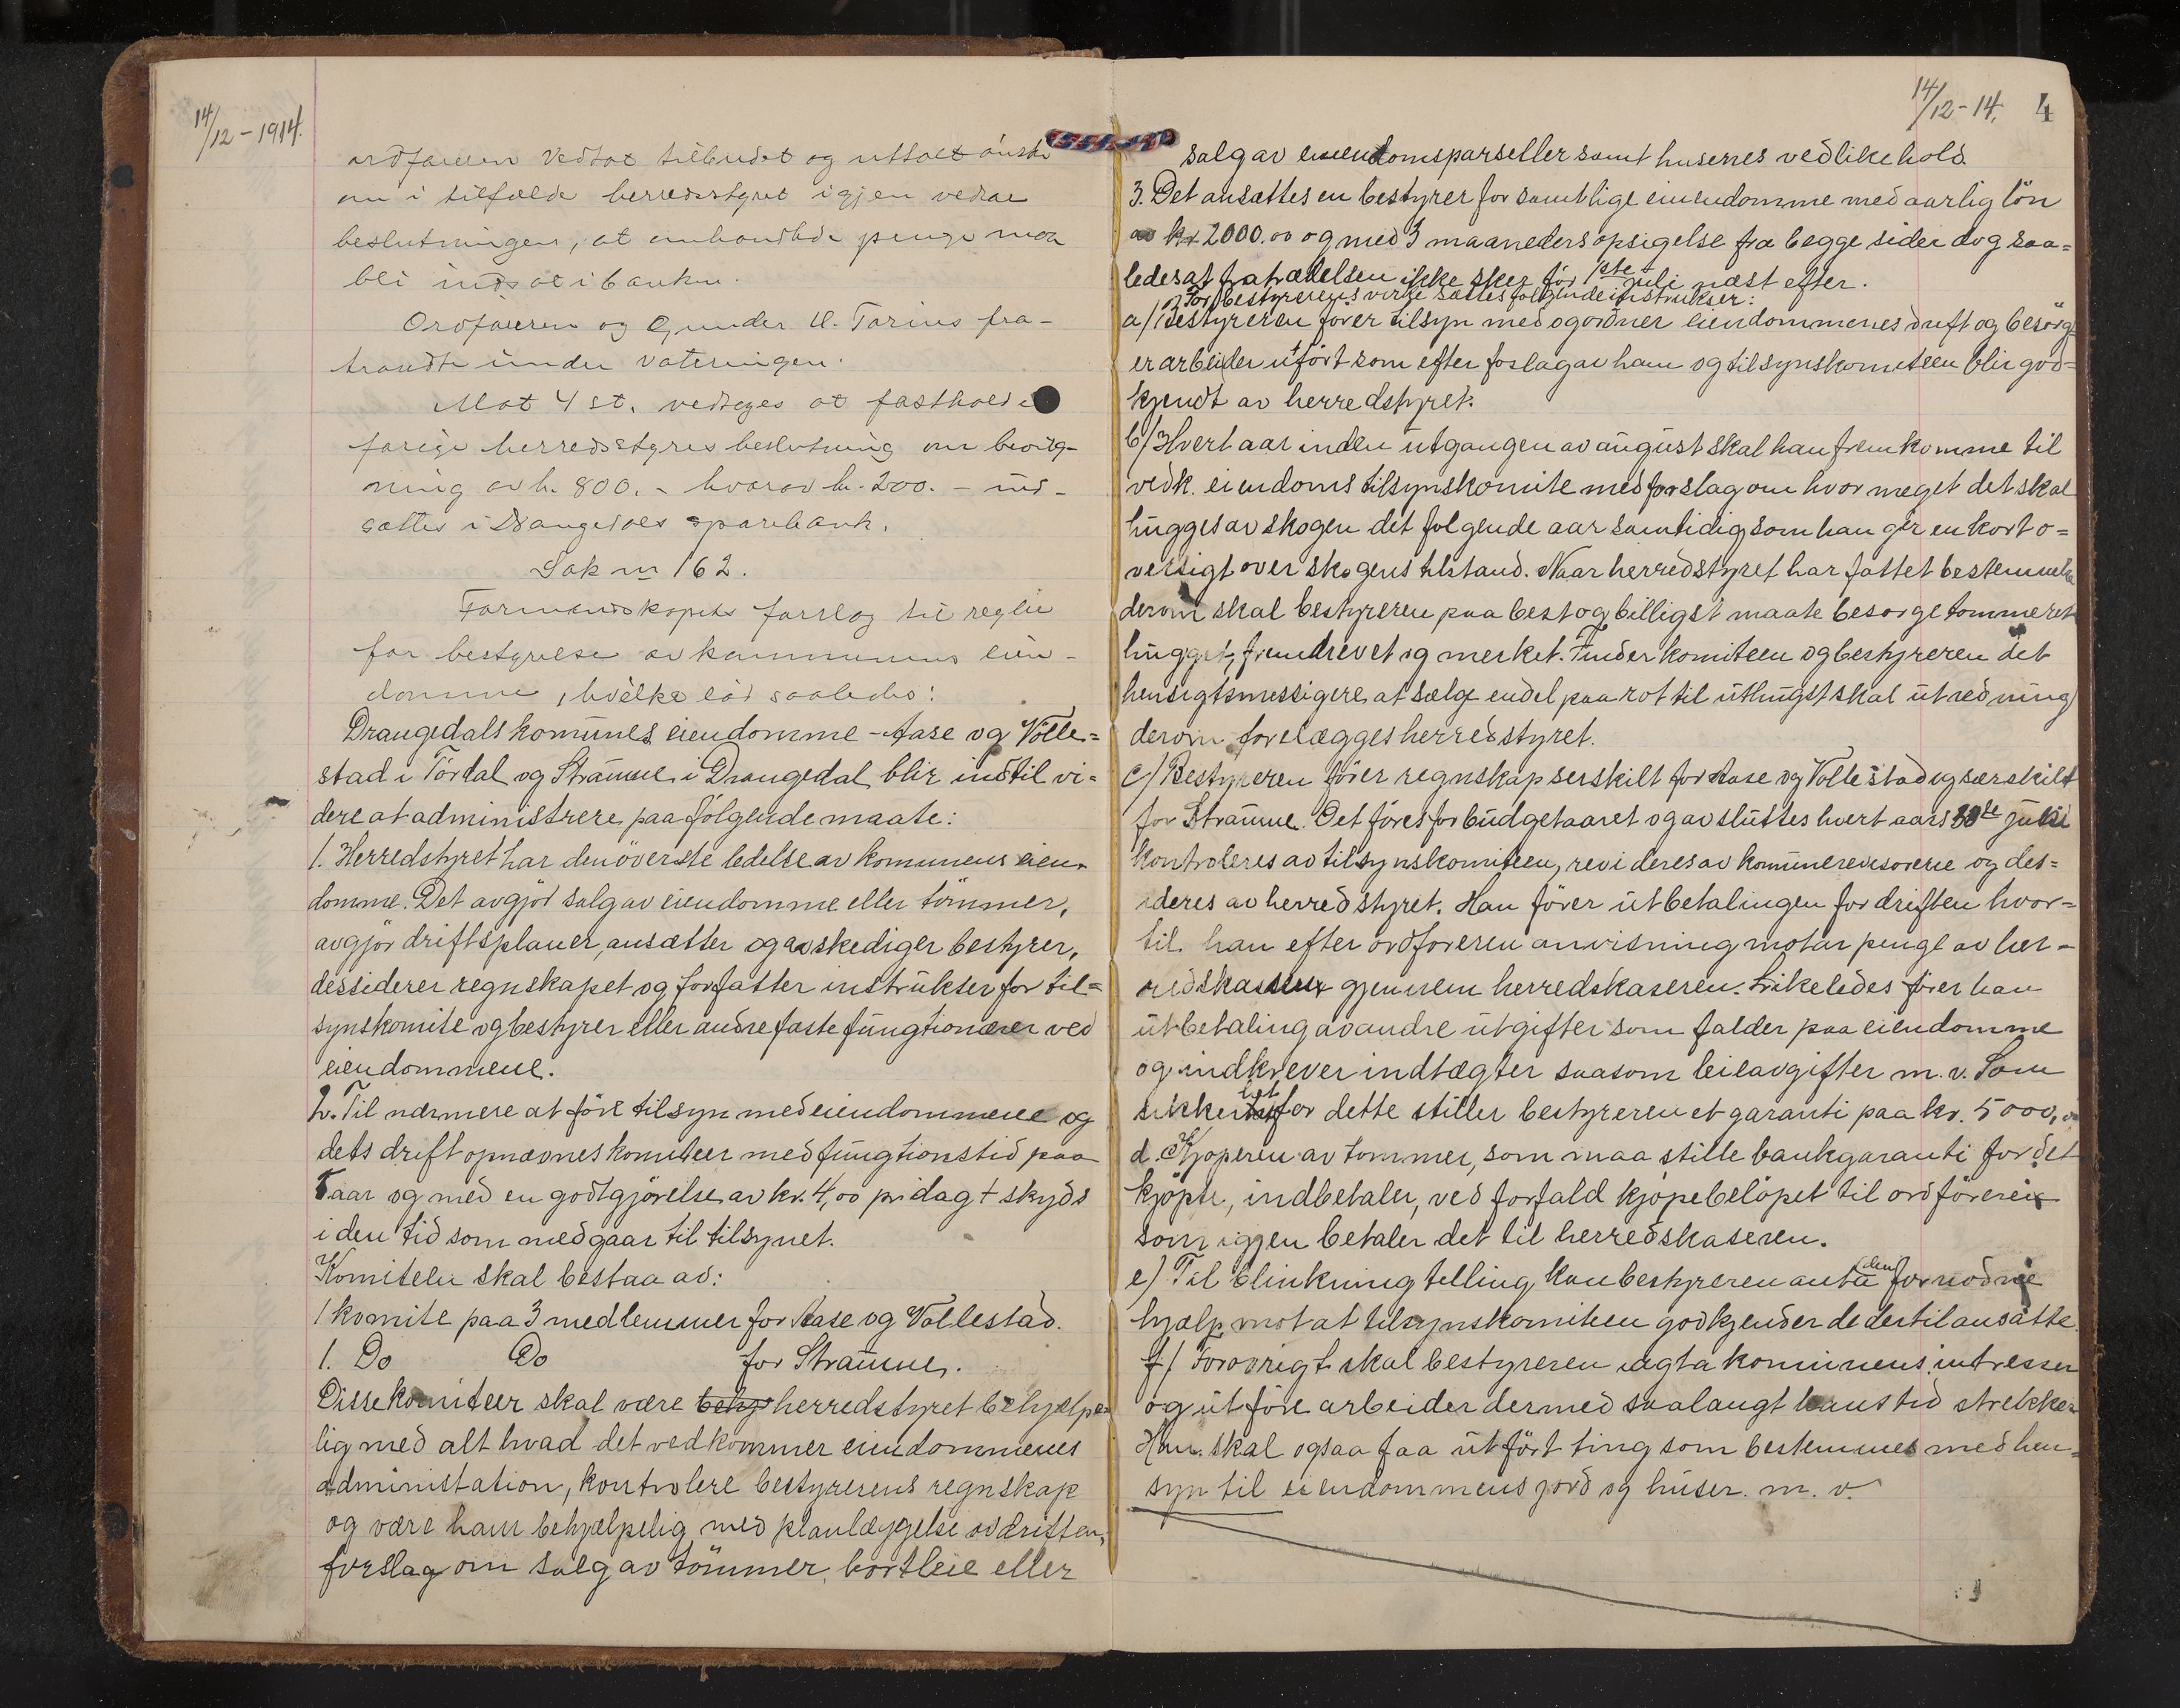 14/12-1914.
ordføreren vedtat tilbudet og uttalt ønske
om i tilfælde herredsstyret igjen vedtar
beslutningen, at omhandlede penge maa
bli indsat i banken.
Ordføreren og Gunder U. Torius fra-
traadte under voteringen.
Mot 4 st. vedtoges at fastholde
forige herredsstyres beslutning om bevilg-
ning av kr. 800.- hvorav kr. 200.- ind-
sættes i Drangedals sparebank.
Sak nr 162.
Formandskapets forslag til regler
for bestyrelse av kommunens eien-
domme, hvilke lød saaledes:
Drangedals komunes eiendomme - Aase og Völle=
stad i Tördal og Straume i Drangedal blir indtil vi=
dere at administrere paa fölgende maate:
1. Herredstyret har den överste ledelse av komunens eien-
domme. Det avgjör salg av eiendomme eller tömmer,
avgjör driftsplaner, ansætter og avskediger bestyrer,
dessiderer regnskapet og forfatter instrukser for til=
synskomite og bestyrer eller andre faste fungtionærer ved
eiendommene.
2. Til nærmere at före tilsyn med eiendommene og
dets drift opnævnes komiteer med fungtionstid paa
5 aar og med en godtgjörelse av kr. 4,00 pr dag + skyds
i den tid som medgaar til tilsynet.
Komiteen skal bestaa av:
1 komite paa 3 medlemmer for Aase og Vollestad.
1. Do Do for Straume.
Disse komiteer skal være behj herredstyret behjelpe
lig med alt hvad det vedkommer eiendommenes
administation, kontrolere bestyrerens regnskap
og være ham behjælpelig med planlæggelse av driften,
forslag om salg av tömmer, bortleie eller
14/12-14. 4
salg av eiendomsparseller samt husenes vedlikehold.
3. Det ansættes en bestyrer for samtlige eiendomme med aarlig lön
av kr 2000.00 og med 3 maaneders opsigelse fra begge sider dog saa=
ledes at fratrædelsen ikke sker för 1ste juli næst efter.
For bestyrerens virke sættes folgende instrukser:
a/ Bestyreren förer tilsyn med og ordner eiendommenes drift og besörg
er arbeider utfört som efter foslag av ham og tilsynskomiteen blir god=
kjendt av herredstyret.
b/ Hvert aar inden utgangen av august skal han fremkomme til
vedk. eiendoms tilsynskomite med forslag om hvor meget det skal
hugges av skogen det folgende aar samtidig som han gir en kort o=
versigt over skogens tilstand. Naar herredstyret har fattet bestemmelse
derom skal bestyreren paa best og billigst maate besorge tommeret
hugget, fremdrevet og merket. Finder komiteen og bestyreren det
hensigtsmessigere at sælge endel paa rot til uthugst skal utredning
derom forelægges herredstyret.
c/ Bestyreren förer regnskap serskilt for Aase og Vollestad og særskilt
for Straume. Det föres for budgetaaret og avsluttes hvert aars 30te juni
kontroleres av tilsynskomiteen, revideres av komunerevisorene og des=
ideres av herredstyret. Han förer utbetalingen for driften hvor=
til han efter ordforeren anvisning motar penge av her-
redskassen gjennem herredskaseren. Likeledes förer han
utbetaling av andre utgifter som falder paa eiendomme
og indkrever indtægter saasom leieavgifter m.v. Som
sikkerhet for dette stiller bestyreren et garanti paa kr. 5000,00
d. Kjoperen av tommer, som maa stille bankgaranti for det
kjöpte, indbetaler, ved forfald kjöpebelöpet til ordföreren
som igjen betaler det til herredskaseren.
e) Til blinkning telling kan bestyreren anta den fornodne
hjælp mot at tilsynskomiteen godkjender de dertil ansatte.
f/ Forovrigt skal bestyreren iagta komunens intresser
og utföre arbeider dermed saalangt hans tid strekker
Han skal ogsaa faa utfört ting som bestemmes med hen=
syn til eiendommens jord og huser. m. v.